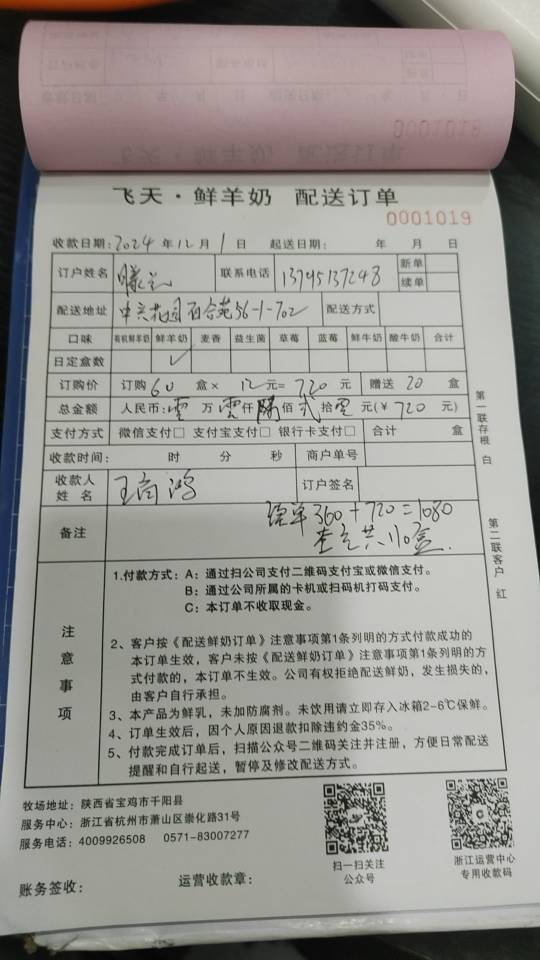 飞天·鲜羊奶 配送订单
0001019
收款日期:2024年12月1日 起送日期: 年 月 日
订户姓名 联系电话 13745137248 新单
续单
配送地址 中兴花园百合苑56-1-702 配送方式
口味 有机鲜羊奶 鲜羊奶 麦香 益生菌 草莓 蓝莓 鲜牛奶 酸牛奶 合计
日定盒数 ✓
订购价 订购60盒×12元=720元 赠送20盒
总金额 人民币:零万零仟 佰贰拾零元(¥720元)
支付方式 微信支付□ 支付宝支付□ 银行卡支付□ 合计 盒
收款时间: 时 分 秒 商户单号
收款人姓名 订户签名
备注 360+720=1080
共110盒.
注意事项
1.付款方式:A:通过扫公司支付二维码支付宝或微信支付。
B:通过公司所属的卡机或扫码机打码支付。
C:本订单不收取现金。
2、客户按《配送鲜奶订单》注意事项第1条列明的方式付款成功的
本订单生效,客户未按《配送鲜奶订单》注意事项第1条列明的方
式付款的,本订单不生效。公司有权拒绝配送鲜奶,发生损失的,
由客户自行承担。
3、本产品为鲜乳,未加防腐剂。未饮用请立即存入冰箱2-6℃保鲜。
4、订单生效后,因个人原因退款扣除违约金35%。
5、付款完成订单后,扫描公众号二维码关注并注册,方便日常配送
提醒和自行起送,暂停及修改配送方式。
第一联存根 白
第二联客户 红
牧场地址:陕西省宝鸡市千阳县
服务中心:浙江省杭州市萧山区崇化路31号
服务电话:4009926508 0571-83007277
扫一扫关注
公众号
浙江运营中心
专用收款码
账务签收: 运营收款章: